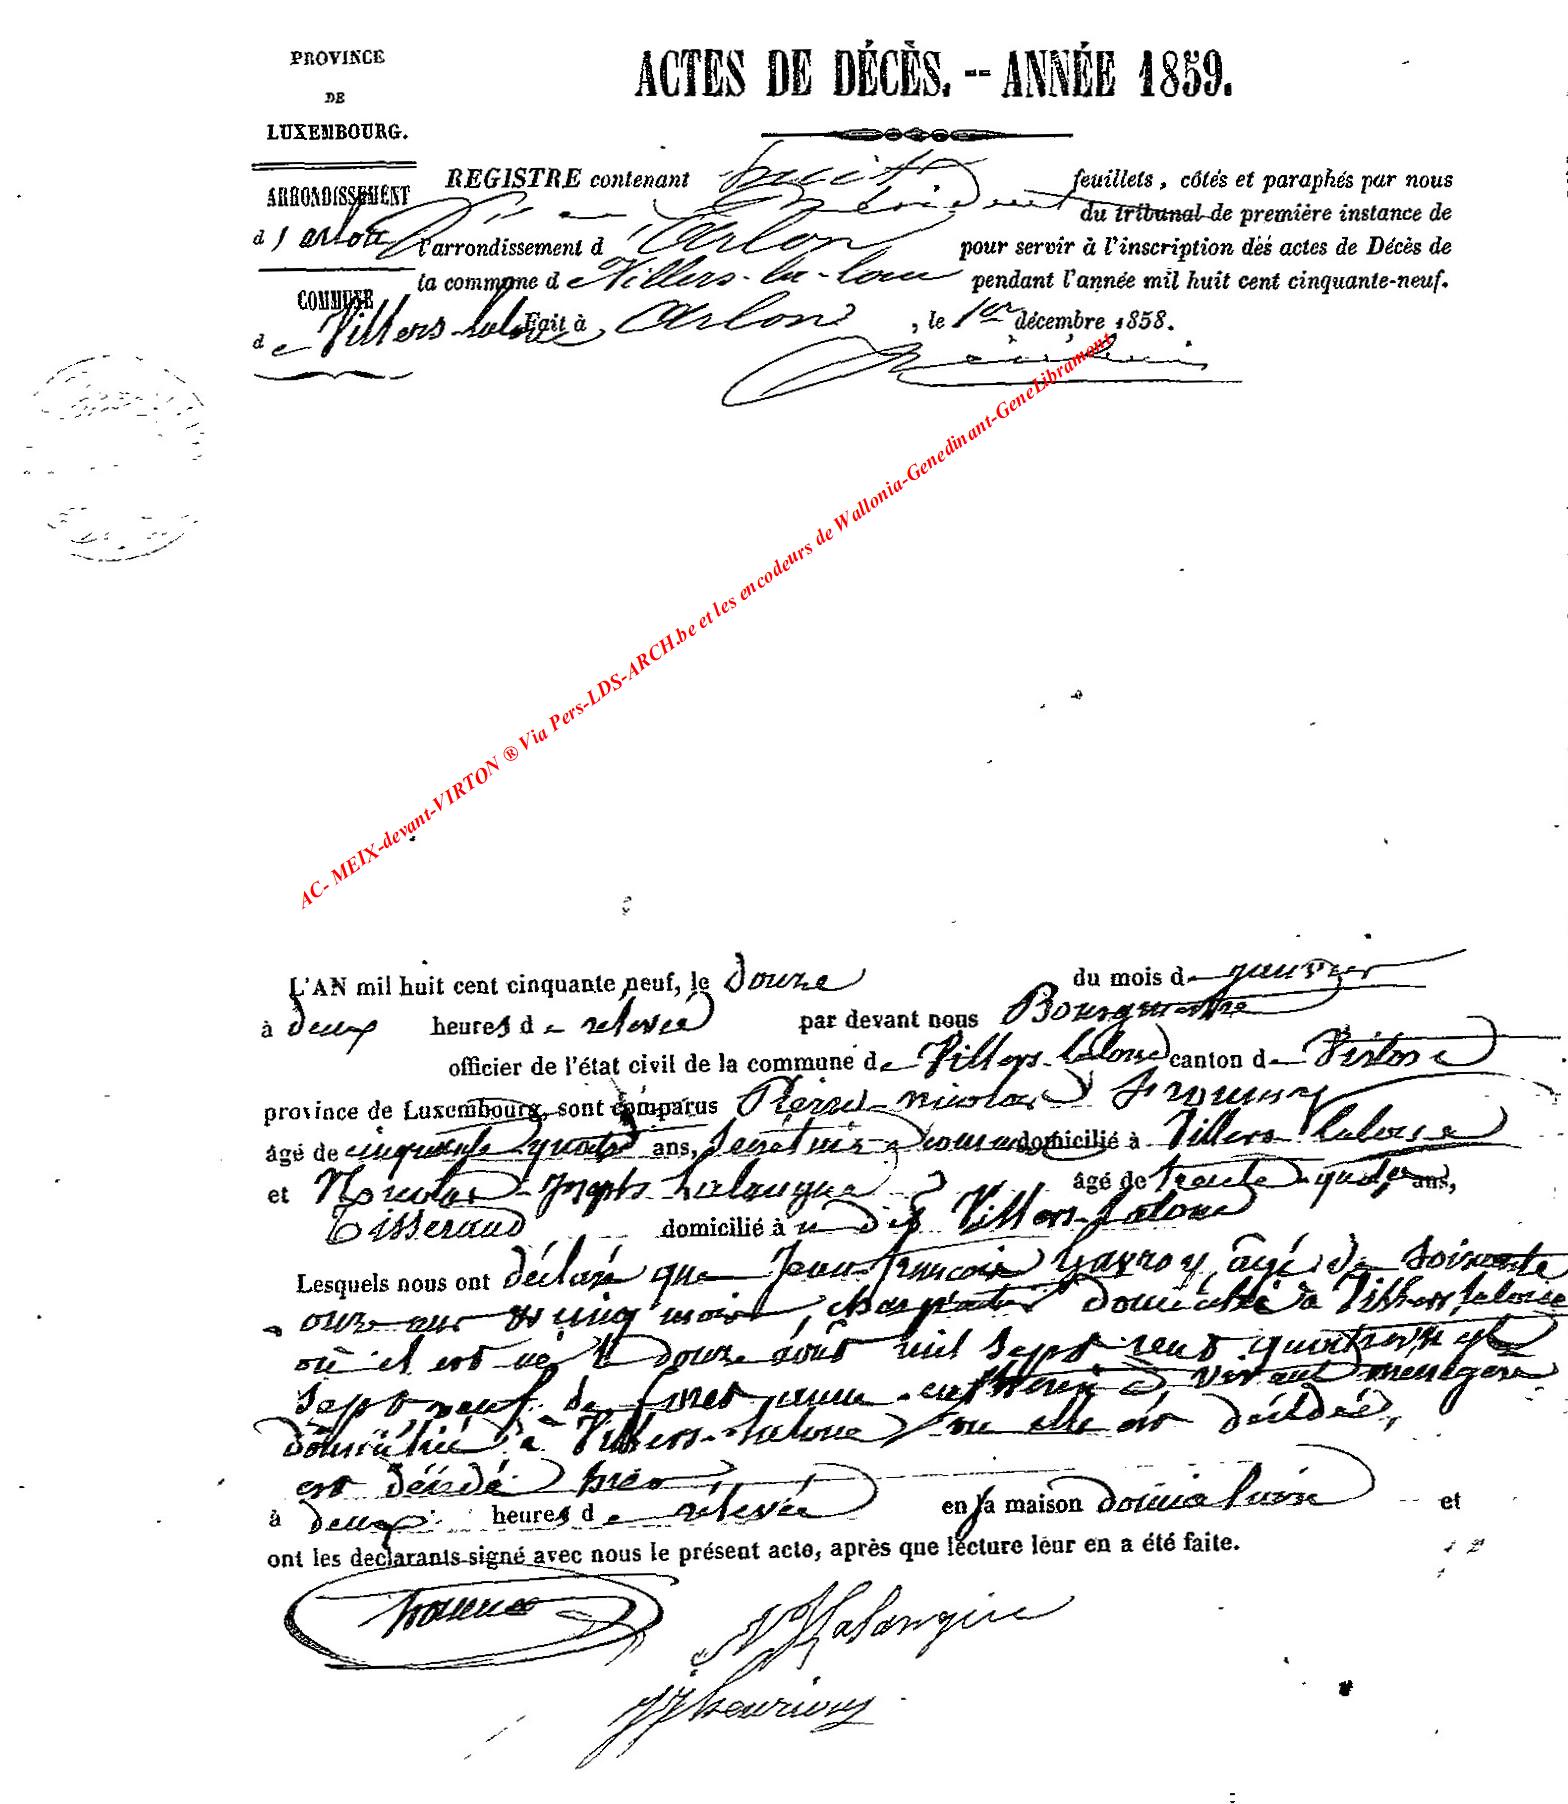 PROVINCE
DE
LUXEMBOURG.
ARRONDISSEMENT
d'arlon
COMMUNE
de Villers-laloue
ACTES DE DÉCÈS. -- ANNÉE 1859.
REGISTRE contenant huit feuillets, côtés et paraphés par nous
Président du tribunal de première instance de
l'arrondissement d'Arlon pour servir à l'inscription des actes de Décès de
la commune de Villers-la-loue pendant l'année mil huit cent cinquante-neuf.
Fait à Arlon, le 1er décembre 1858.
AC- MEIX-devant-VIRTON ® Via Pers-LDS-ARCH.be et les encodeurs de Wallonia-Genedinant-GeneLibramont
L'AN mil huit cent cinquante neuf, le douze du mois de janvier
à deux heures de relevée par devant nous Bourgmestre
officier de l'état civil de la commune de Villers-laloue canton de Virton
province de Luxembourg, sont comparus Pierre-nicolas
âgé de cinquante quatre ans, secrétaire communal domicilié à Villers-laloue
et Nicolas-Joseph Lalangue âgé de trente-quatre ans,
Tisserand domicilié à Villers-laloue
Lesquels nous ont déclaré que Jean-françois Gavroy, âgé de soixante
onze ans cinq mois, charpentier domicilié à Villers-laloue
où il est né le douze août mil sept cent quatre vingt
sept veuf de vivant menagère
domiciliée à Villers-laloue où elle est décédée,
est décédé hier
à deux heures de relevée en sa maison et
ont les déclarants signé avec nous le présent acte, après que lecture leur en a été faite.
NJ Lalangue